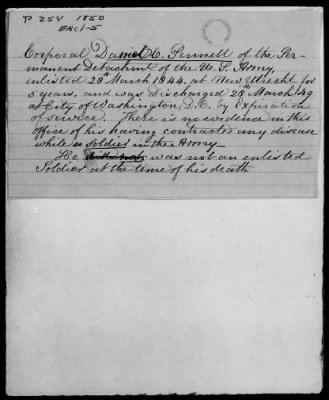 P 254 1850
Encl-5
Corporal Daniel C. Pennell of the Per-
manent Detachmt of the U. S. Army,
enlisted 28th March 1844, at New Utrecht for
5 years, and was discharged 28th March 49
at City of Washington, D.C. by expiration
of service. There is no evidence in this
office of his having contracted any disease
while a soldier in the Army
He was not an enlisted
Soldier at the time of his death